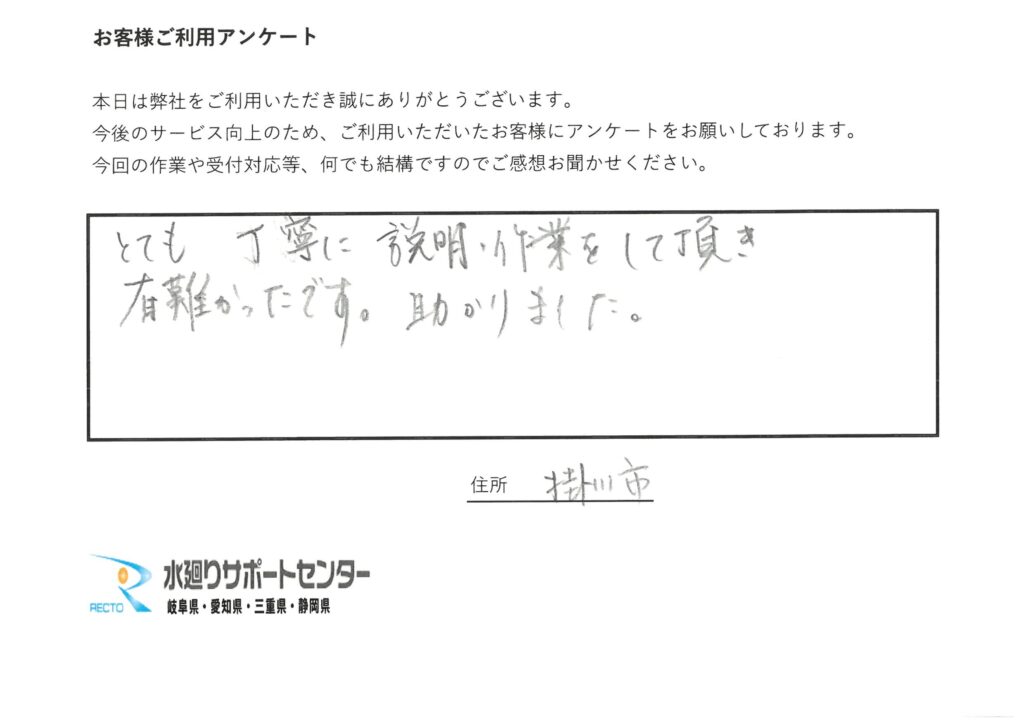 お客様ご利用アンケート
本日は弊社をご利用いただき誠にありがとうございます。
今後のサービス向上のため、ご利用いただいたお客様にアンケートをお願いしております。
今回の作業や受付対応等、何でも結構ですのでご感想お聞かせください。
とても 丁寧に 説明・作業をして頂き
有難かったです。助かりました。
住所 掛川市
水廻りサポートセンター
RECTO 岐阜県・愛知県・三重県・静岡県